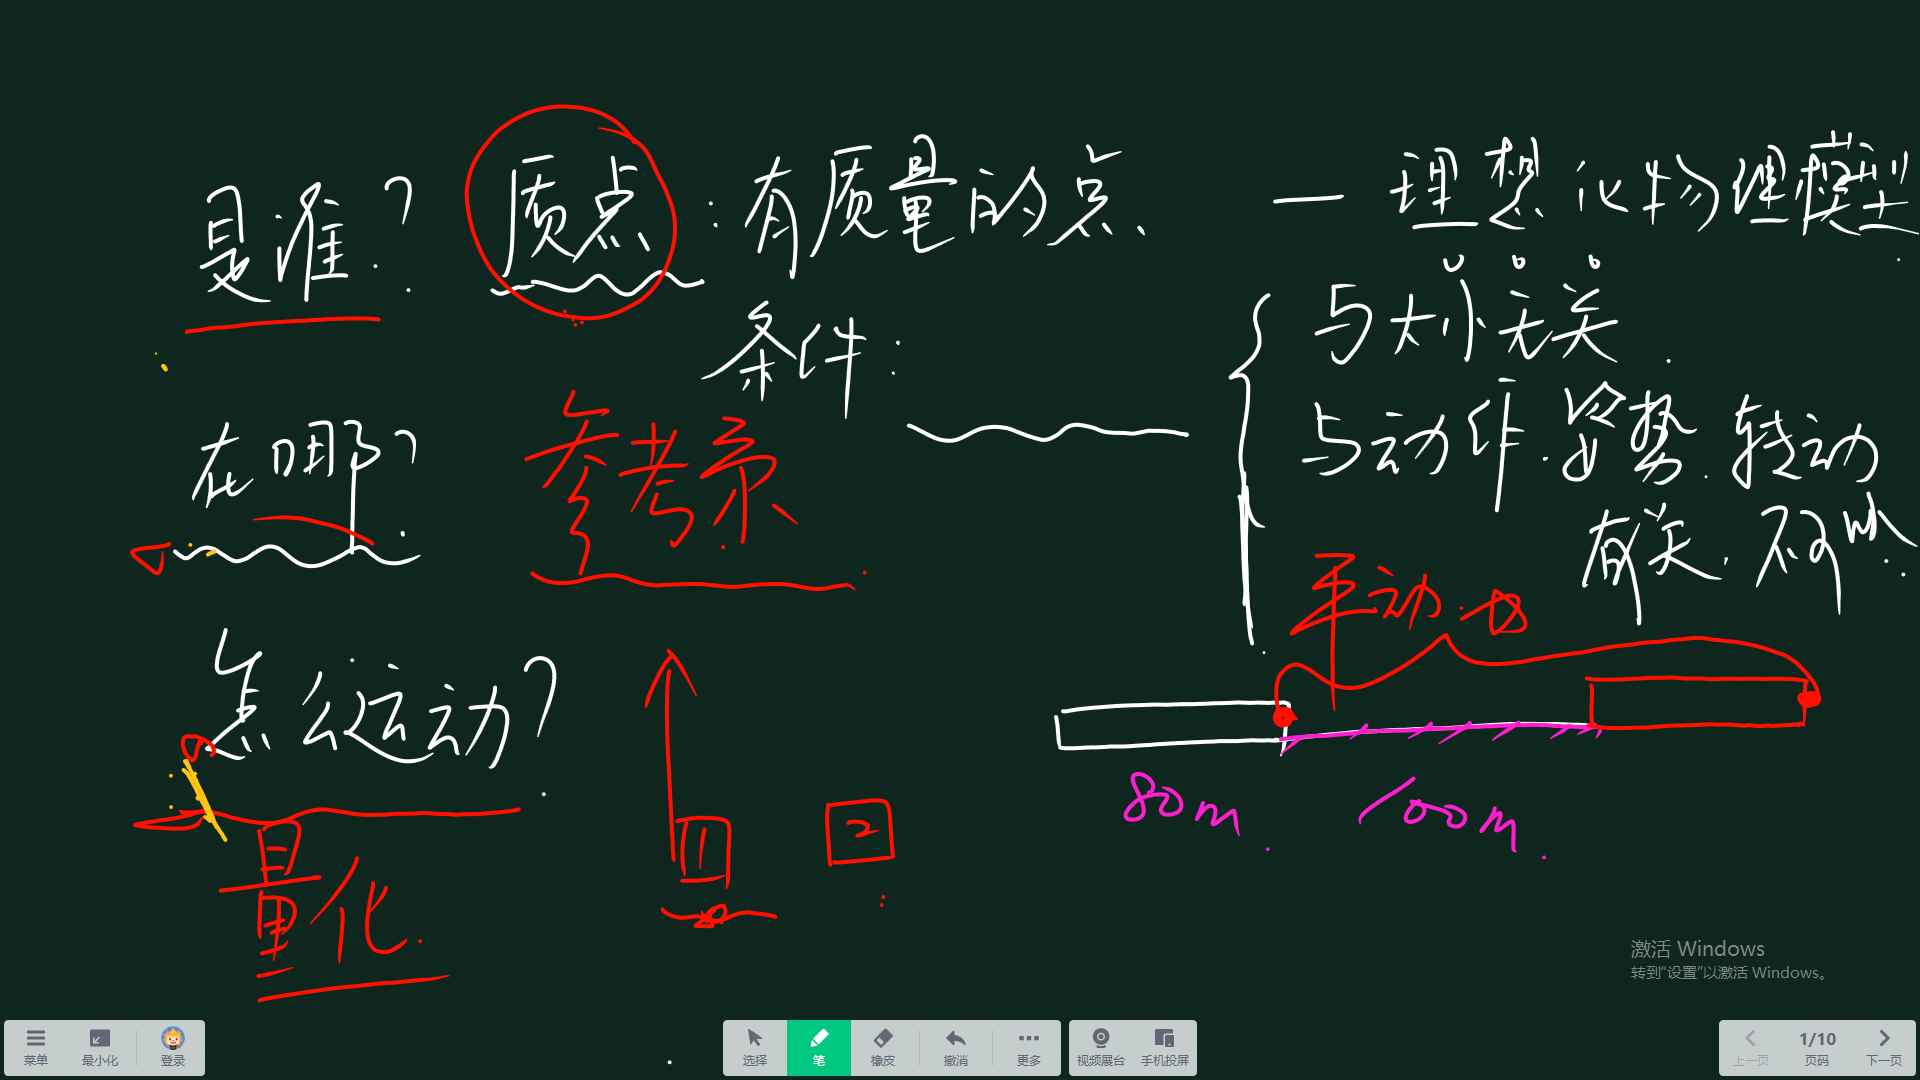 是谁? 质点:有质量的点. — 理想化物理模型.
条件:
与大小无关.
与动作.姿势.转动
有关,不可以.
在哪? 参考系
平动.可
怎么运动?
80m. 100m.
1 2
量化.
激活 Windows
转到“设置”以激活 Windows。
菜单 最小化 登录 选择 笔 橡皮 撤消 更多 视频展台 手机投屏 上一页 1/10 页码 下一页